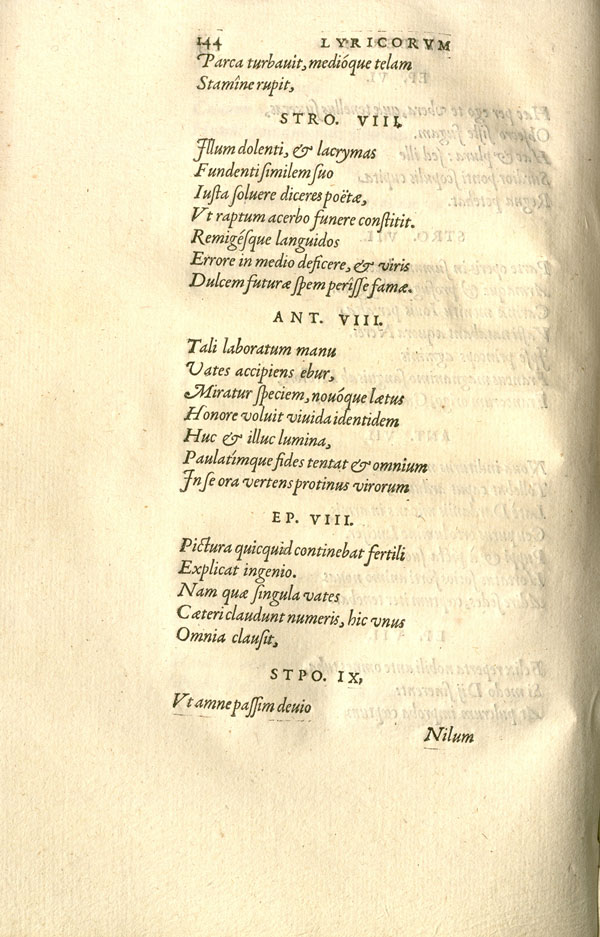 144 LYRICORVM
Parca turbauit, medióque telam
Stamîne rupit,
STRO. VIII.
Illum dolenti, & lacrymas
Fundenti similem suo
Iusta soluere diceres poëtæ,
Vt raptum acerbo funere constitit.
Remigésque languidos
Errore in medio deficere, & viris
Dulcem futuræ spem perîsse famæ.
ANT. VIII.
Tali laboratum manu
Vates accipiens ebur,
Miratur speciem, nouóque lætus
Honore voluit viuida identidem
Huc & illuc lumina,
Paulatímque fides tentat & omnium
In se ora vertens protinus virorum
EP. VIII.
Pictura quicquid continebat fertili
Explicat ingenio.
Nam quæ singula vates
Cæteri claudunt numeris, hic vnus
Omnia clausit,
STPO. IX,
Vt amne passim deuio
Nilum